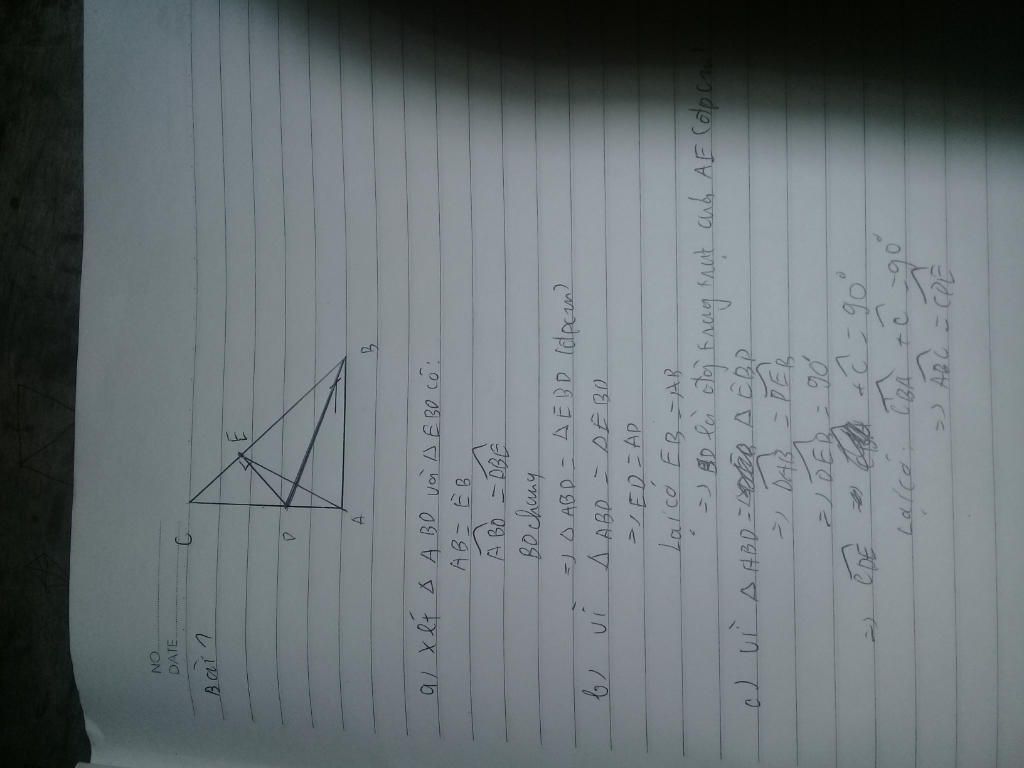 NO.
DATE
Bài 1
C
E
D
A
B
a) Xét Δ ABD và Δ EBD có:
AB = EB
ABD = DBE
BD chung
=> Δ ABD = Δ EBD (đpcm)
b) Vì Δ ABD = Δ EBD
=> ED = AD
Lại có EB = AB
=> BD là đg trung trực của AE (đpcm)
c) Vì Δ ABD = Δ EBD
=> DAB = DEB
=> DEB = 90°
=> CDE + C = 90°
Lại có: CBA + C = 90°
=> ABC = CDE